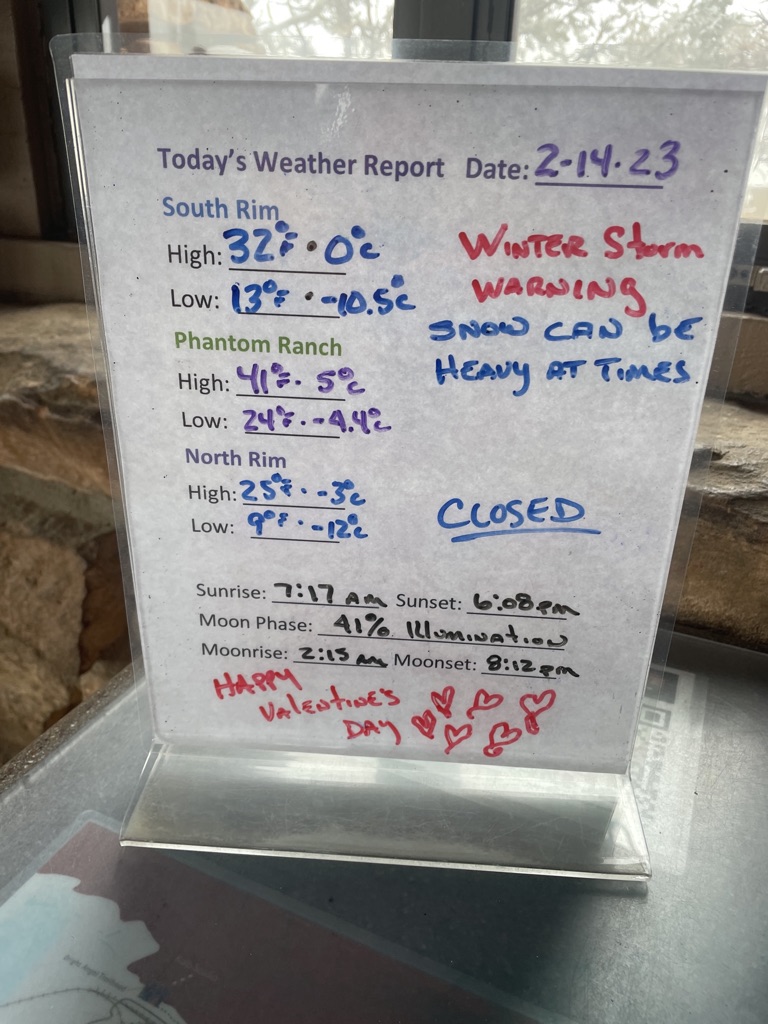 Today's Weather Report Date: 2-14-23
South Rim
High: 32°F • 0°C
Low: 13°F • -10.5°C
WINTER STORM
WARNING
SNOW CAN BE
HEAVY AT TIMES
Phantom Ranch
High: 41°F • 5°C
Low: 24°F • -4.4°C
North Rim
High: 25°F • -3°C
Low: 9°F • -12°C
CLOSED
Sunrise: 7:17 AM Sunset: 6:08 PM
Moon Phase: 41% ILLUMINATION
Moonrise: 2:15 AM Moonset: 8:12 PM
HAPPY
VALENTINE'S
DAY